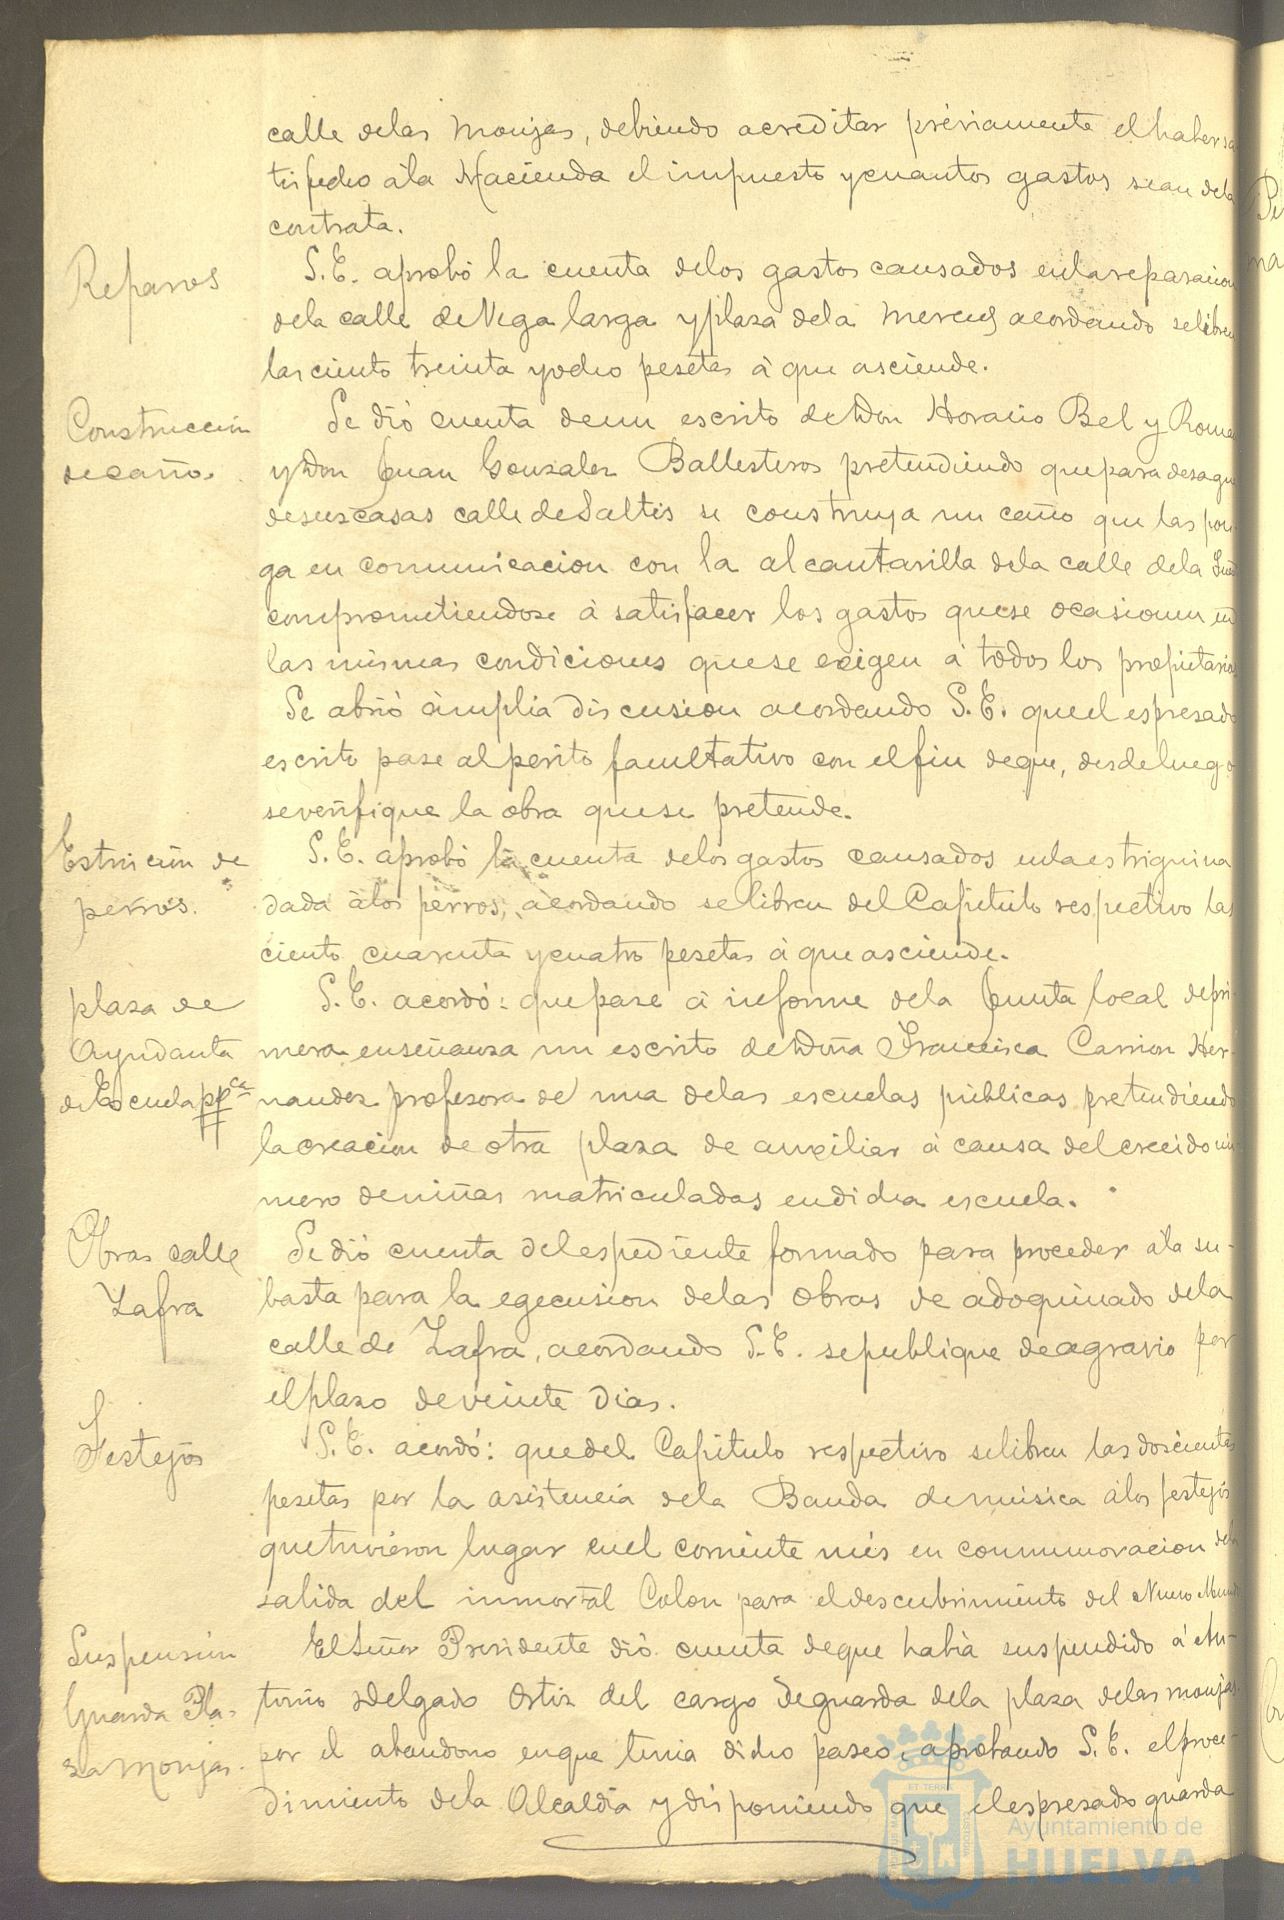 calle de las Monjas, debiendo acreditar préviamente el haber sa
tisfecho á la Hacienda el impuesto y cuantos gastos sean de la
contrata.
Reparos
S. E. aprobó la cuenta de los gastos causados en la reparacion
de la calle de Vega larga y plaza de la Merced acordando se libren
las ciento treinta y ocho pesetas á que asciende.
Construccion
de caño.
Se dió cuenta de un escrito de Don Horacio Bel y Roman
y Don Juan Gonzalez Ballesteros pretendiendo que para desague
de sus casas calle de Saltis se construya un caño que las pon-
ga en comunicacion con la alcantarilla de la calle de la
comprometiendose á satisfacer los gastos que se ocasionen en
las mismas condiciones que se exigen á todos los propietarios
Se abrió ámplia discusion acordando S. E. que el espresado
escrito pase al perito facultativo con el fin de que, desde luego
se verifique la obra que se pretende.
Estricnina de
perros.
S. E. aprobó la cuenta de los gastos causados en la estriguina
dada á los perros, acordando se libren del Capitulo respectivo las
ciento cuarenta y cuatro pesetas á que asciende.
plaza de
Ayudanta
de Escuela ppca
S. E. acordó: que pase á informe de la Junta local de pri-
mera enseñanza un escrito de Doña Francisca Carrion Her-
nandez profesora de una de las escuelas públicas pretendiendo
la creacion de otra plaza de auxiliar á causa del crecido nú-
mero de niñas matriculadas en dicha escuela.
Obras calle
Zafra
Se dió cuenta del espediente formado para proceder á la su-
basta para la egecusion de las obras de adoquinado de la
calle de Zafra, acordando S. E. se publique de agravio por
el plazo de veinte dias.
Festejos
S. E. acordó: que del Capitulo respectivo se libren las doscientas
pesetas por la asistencia de la Banda de música á los festejos
que tuvieron lugar en el corriente mes en conmemoracion de la
salida del inmortal Colon para el descubrimiento del Nuevo Mundo
Suspension
Guarda Pla-
za Monjas.
El Señor Presidente dió cuenta de que habia suspendido á An-
tonio Delgado Ortiz del cargo de guarda de la plaza de las monjas
por el abandono en que tenia dicho paseo, aprobando S. E. el proce-
dimiento de la Alcaldia y disponiendo que el espresado guarda
ET TERRE
Ayuntamiento de
HUELVA